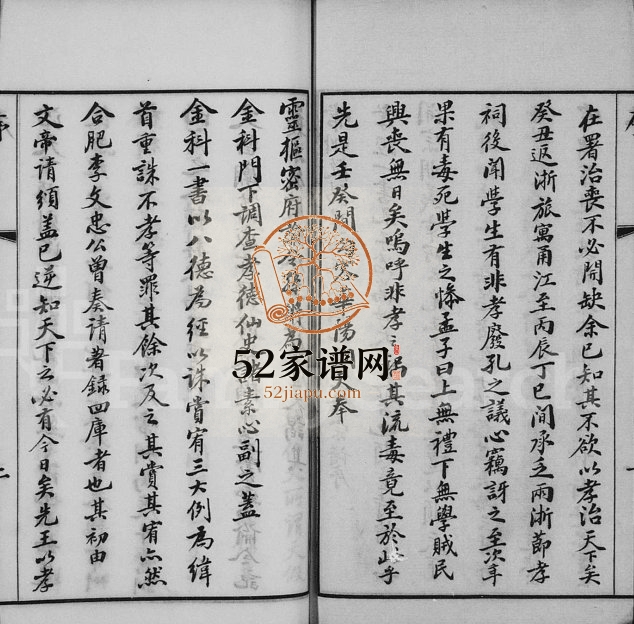 在署治喪不必開缺余已知其不欲以孝治天下矣
癸丑返浙旅寓甬江至丙辰丁巳間承乏兩浙節孝
祠後聞學生有非孝廢孔之議心竊訝之至次年
果有毒死學生之慘孟子曰上無禮下無學賊民
興喪無日矣嗚呼非孝之其流毒竟至於此乎
先是壬癸間華陽奉
靈樞密府為
金科門下調查孝德仙史素心副之蓋
金科一書以八德為經以誅賞宥三大例為緯
首重誅不孝等罪其餘次及之其賞其宥亦然
合肥李文忠公曾奏請著錄四庫者也其初由
文帝請頒蓋已逆知天下之必有今日矣先王以孝
52家谱网
52jiapu.com